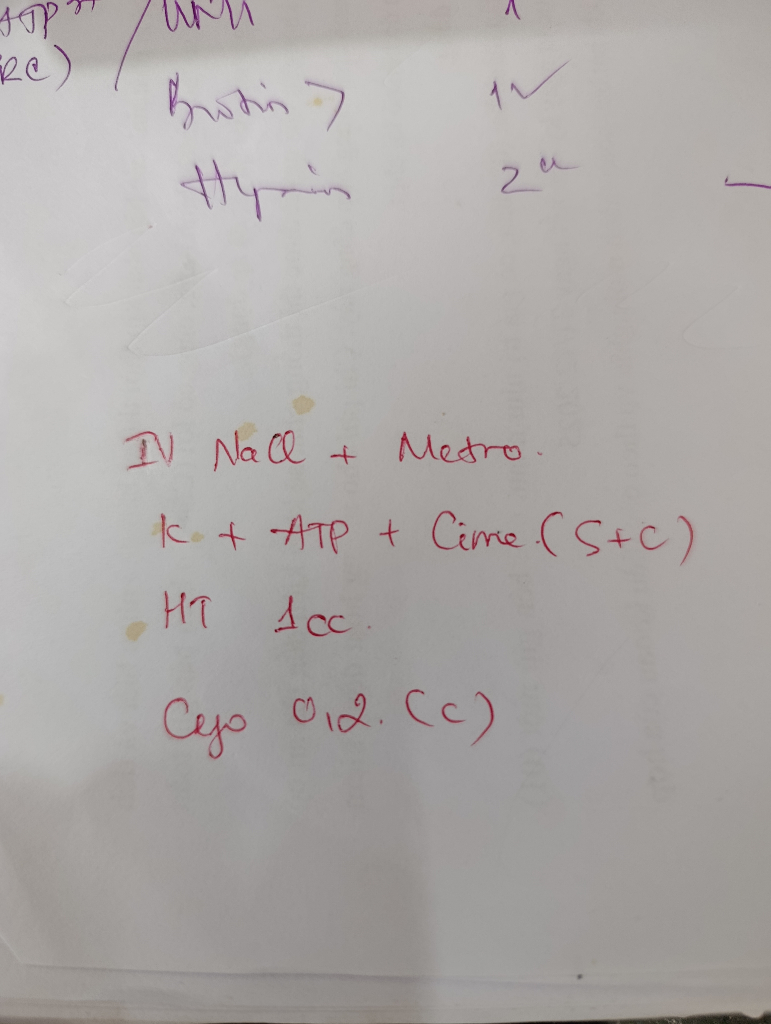 ATP
RC) /
Biotin > 1
2
IV NaCl + Metro.
K + ATP + Cime. (S+C)
HT 1cc.
Cefo 0,2. (C)